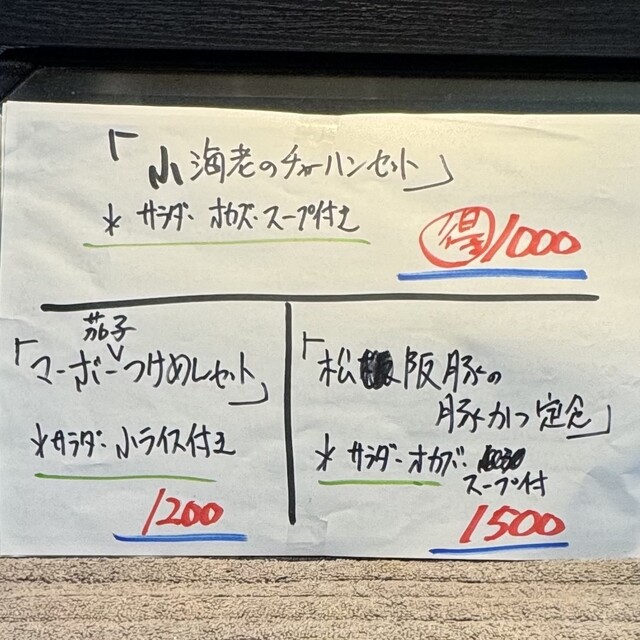 「小海老のチャーハンセット」
＊サラダ・オカズ・スープ付き
得1000
茄子
「マーボーつけめんセット」
＊サラダ・小ライス付き
1200
「松阪豚の
豚かつ定食」
＊サラダ・オカズ・
スープ付
1500